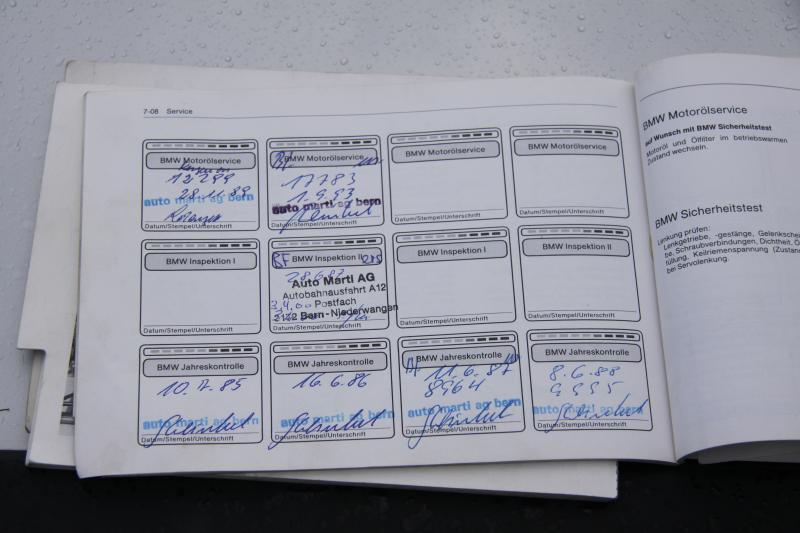 7-08 Service
BMW Motorölservice
12299
28.11.89
auto marti ag bern
Datum/Stempel/Unterschrift
BMW Motorölservice
17783
1.9.93
auto marti ag bern
Datum/Stempel/Unterschrift
BMW Motorölservice
Datum/Stempel/Unterschrift
BMW Motorölservice
Datum/Stempel/Unterschrift
BMW Inspektion I
Datum/Stempel/Unterschrift
BF BMW Inspektion II
Auto Marti AG
Autobahnausfahrt A12
Postfach
Bern-Niederwangen
Datum/Stempel/Unterschrift
BMW Inspektion I
Datum/Stempel/Unterschrift
BMW Inspektion II
Datum/Stempel/Unterschrift
BMW Jahreskontrolle
10.7.85
auto marti ag bern
Datum/Stempel/Unterschrift
BMW Jahreskontrolle
16.6.86
auto marti ag bern
Datum/Stempel/Unterschrift
BMW Jahreskontrolle
11.6.87
8964
auto marti ag bern
Datum/Stempel/Unterschrift
BMW Jahreskontrolle
8.6.88
9995
auto marti ag bern
Datum/Stempel/Unterschrift
BMW Motorölservice
auf Wunsch mit BMW Sicherheitstest
Motoröl und Ölfilter im betriebswarmen
Zustand wechseln.
BMW Sicherheitstest
Lenkung prüfen:
Lenkgetriebe, -gestänge, Gelenksche
be, Schraubverbindungen, Dichtheit, Ö
füllung, Keilriemenspannung (Zustan
bei Servolenkung.